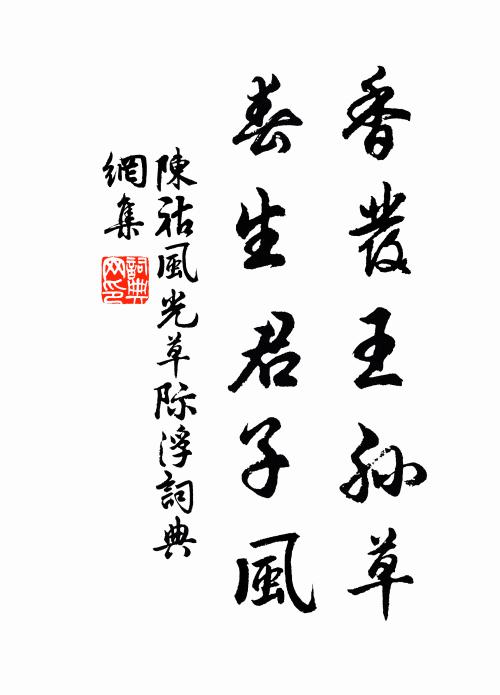 香發王孫草
春生君子風
陳祜風光草際浮詞典
網集
詞典
網印